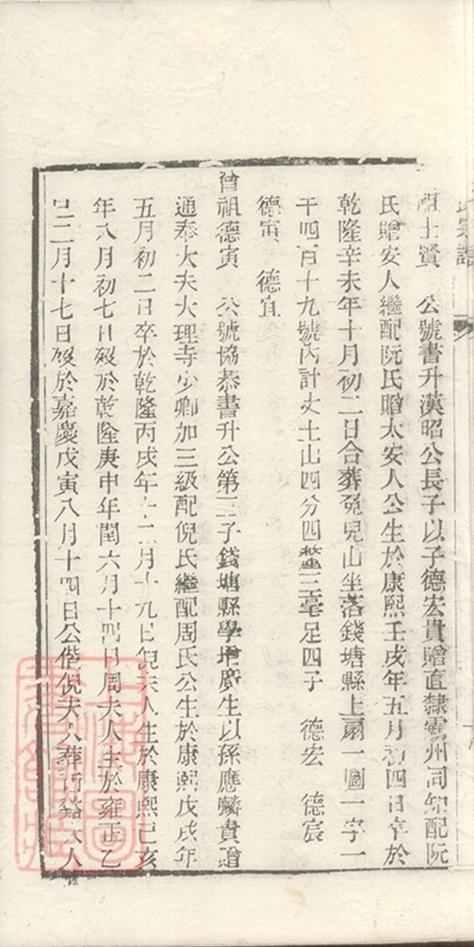 祖士賢 公號書升漢昭公長子以子德宏貴贈直隸霸州同知配阮
氏贈安人繼配阮氏贈太安人公生於康熙壬戌年五月初四日卒於
乾隆辛未年十月初二日合葬兔兒山坐落錢塘縣上扇一圖一字一
千四百十九號內計丈土山四分四釐三毫足四子 德宏 德宸
德寅 德宜
曾祖德寅 公號協恭書升公第三子錢塘縣學增廣生以孫應麟貴贈
通奉大夫大理寺少卿加三級配倪氏繼配周氏公生於康熙戊戌年
五月初二日卒於乾隆丙戌年十二月十九日倪夫人生於康熙己亥
年八月初七日歿於乾隆庚申年閏六月十四日周夫人生於雍正乙
巳二月十七日歿於嘉慶戊寅八月十四日公偕倪夫人葬 夫人